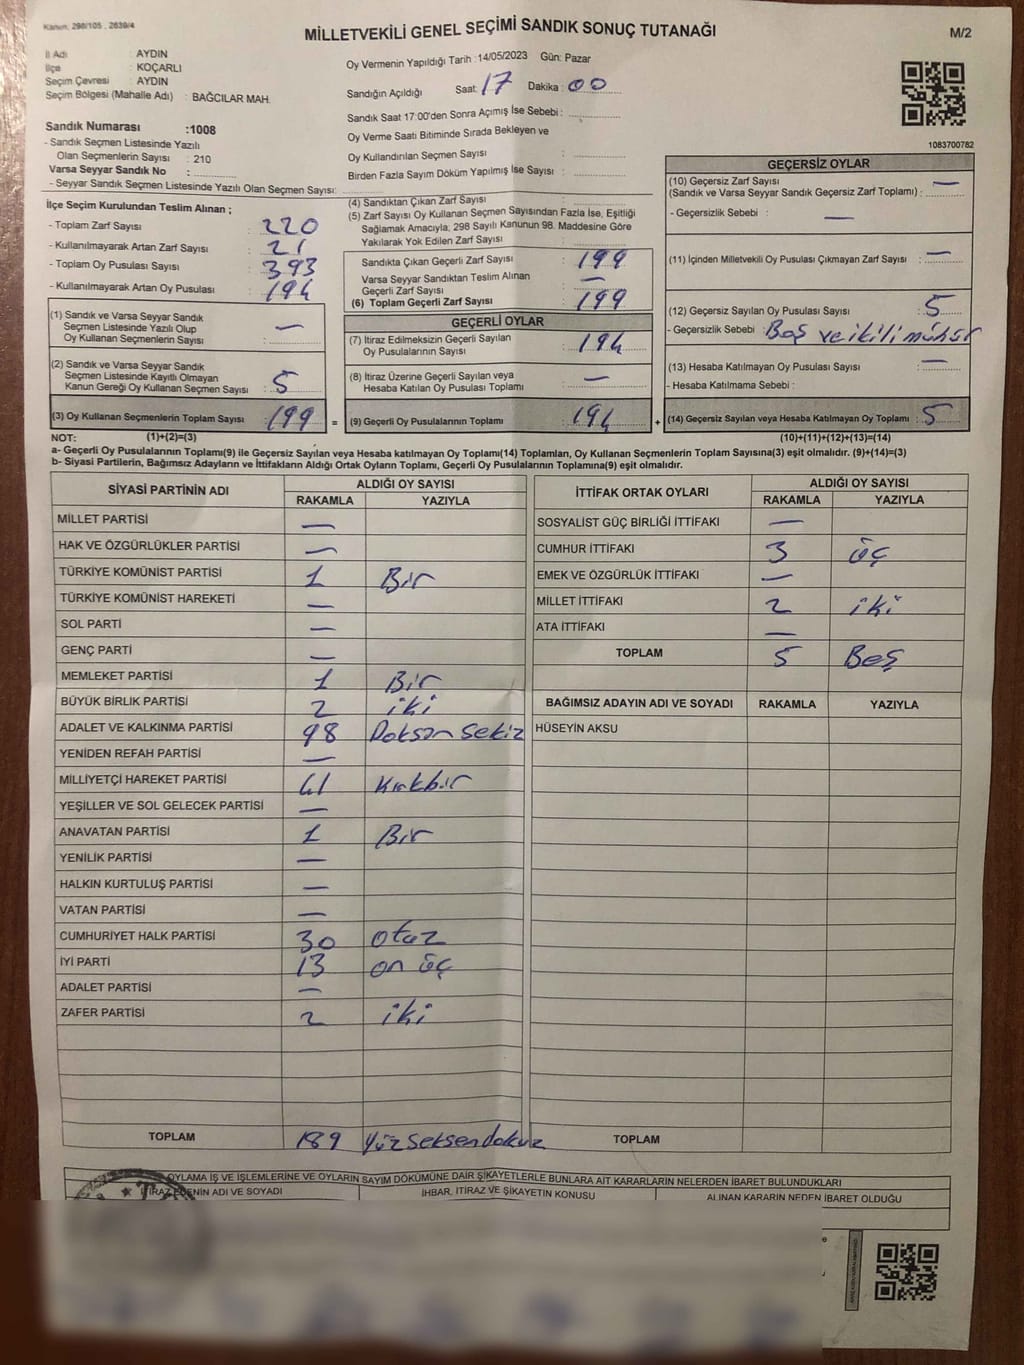 Kanun: 298/105 , 2839/4
MİLLETVEKİLİ GENEL SEÇİMİ SANDIK SONUÇ TUTANAĞI
M/2
İl Adı : AYDIN
İlçe : KOÇARLI
Seçim Çevresi : AYDIN
Seçim Bölgesi (Mahalle Adı) : BAĞCILAR MAH.
Sandık Numarası :1008
- Sandık Seçmen Listesinde Yazılı
Olan Seçmenlerin Sayısı : 210
Varsa Seyyar Sandık No :
- Seyyar Sandık Seçmen Listesinde Yazılı Olan Seçmen Sayısı:
Oy Vermenin Yapıldığı Tarih :14/05/2023 Gün: Pazar
Sandığın Açıldığı Saat: 17 Dakika : 00
Sandık Saat 17:00'den Sonra Açımış İse Sebebi :
Oy Verme Saati Bitiminde Sırada Bekleyen ve
Oy Kullandırılan Seçmen Sayısı :
Birden Fazla Sayım Döküm Yapılmış İse Sayısı :
1083700782
İlçe Seçim Kurulundan Teslim Alınan ;
- Toplam Zarf Sayısı : 220
- Kullanılmayarak Artan Zarf Sayısı : 21
- Toplam Oy Pusulası Sayısı : 393
- Kullanılmayarak Artan Oy Pusulası : 194
(1) Sandık ve Varsa Seyyar Sandık
Seçmen Listesinde Yazılı Olup
Oy Kullanan Seçmenlerin Sayısı : —
(2) Sandık ve Varsa Seyyar Sandık
Seçmen Listesinde Kayıtlı Olmayan
Kanun Gereği Oy Kullanan Seçmen Sayısı : 5
(3) Oy Kullanan Seçmenlerin Toplam Sayısı : 199
(4) Sandıktan Çıkan Zarf Sayısı :
(5) Zarf Sayısı Oy Kullanan Seçmen Sayısından Fazla İse, Eşitliği
Sağlamak Amacıyla, 298 Sayılı Kanunun 98. Maddesine Göre
Yakılarak Yok Edilen Zarf Sayısı :
Sandıkta Çıkan Geçerli Zarf Sayısı : 199
Varsa Seyyar Sandıktan Teslim Alınan
Geçerli Zarf Sayısı : —
(6) Toplam Geçerli Zarf Sayısı : 199
GEÇERLİ OYLAR
(7) İtiraz Edilmeksizin Geçerli Sayılan
Oy Pusulalarının Sayısı : 194
(8) İtiraz Üzerine Geçerli Sayılan veya
Hesaba Katılan Oy Pusulası Toplamı : —
= (9) Geçerli Oy Pusulalarının Toplamı : 194
GEÇERSİZ OYLAR
(10) Geçersiz Zarf Sayısı —
(Sandık ve Varsa Seyyar Sandık Geçersiz Zarf Toplamı) :
- Geçersizlik Sebebi : —
(11) İçinden Milletvekili Oy Pusulası Çıkmayan Zarf Sayısı : —
(12) Geçersiz Sayılan Oy Pusulası Sayısı : 5
- Geçersizlik Sebebi : Boş ve ikili mühür
(13) Hesaba Katılmayan Oy Pusulası Sayısı : —
- Hesaba Katılmama Sebebi :
+ (14) Geçersiz Sayılan veya Hesaba Katılmayan Oy Toplamı : 5
NOT: (1)+(2)=(3)
(10)+(11)+(12)+(13)=(14)
a- Geçerli Oy Pusulalarının Toplamı(9) ile Geçersiz Sayılan veya Hesaba katılmayan Oy Toplamı(14) Toplamları, Oy Kullanan Seçmenlerin Toplam Sayısına(3) eşit olmalıdır. (9)+(14)=(3)
b- Siyasi Partilerin, Bağımsız Adayların ve İttifakların Aldığı Ortak Oyların Toplamı, Geçerli Oy Pusulalarının Toplamına(9) eşit olmalıdır.
SİYASİ PARTİNİN ADI ALDIĞI OY SAYISI
RAKAMLA YAZIYLA
MİLLET PARTİSİ —
HAK VE ÖZGÜRLÜKLER PARTİSİ —
TÜRKİYE KOMÜNİST PARTİSİ 1 Bir
TÜRKİYE KOMÜNİST HAREKETİ —
SOL PARTİ —
GENÇ PARTİ —
MEMLEKET PARTİSİ 1 Bir
BÜYÜK BİRLİK PARTİSİ 2 iki
ADALET VE KALKINMA PARTİSİ 98 Doksan sekiz
YENİDEN REFAH PARTİSİ —
MİLLİYETÇİ HAREKET PARTİSİ 41 Kırkbir
YEŞİLLER VE SOL GELECEK PARTİSİ —
ANAVATAN PARTİSİ 1 Bir
YENİLİK PARTİSİ —
HALKIN KURTULUŞ PARTİSİ —
VATAN PARTİSİ —
CUMHURİYET HALK PARTİSİ 30 otuz
İYİ PARTİ 13 on üç
ADALET PARTİSİ —
ZAFER PARTİSİ 2 iki
TOPLAM 189 Yüz seksen dokuz
İTTİFAK ORTAK OYLARI ALDIĞI OY SAYISI
RAKAMLA YAZIYLA
SOSYALİST GÜÇ BİRLİĞİ İTTİFAKI —
CUMHUR İTTİFAKI 3 üç
EMEK VE ÖZGÜRLÜK İTTİFAKI —
MİLLET İTTİFAKI 2 iki
ATA İTTİFAKI —
TOPLAM 5 Beş
BAĞIMSIZ ADAYIN ADI VE SOYADI RAKAMLA YAZIYLA
HÜSEYİN AKSU
TOPLAM
OYLAMA İŞ VE İŞLEMLERİNE VE OYLARIN SAYIM DÖKÜMÜNE DAİR ŞİKAYETLERLE BUNLARA AİT KARARLARIN NELERDEN İBARET BULUNDUKLARI
İTİRAZ EDENİN ADI VE SOYADI İHBAR, İTİRAZ VE ŞİKAYETİN KONUSU ALINAN KARARIN NEDEN İBARET OLDUĞU